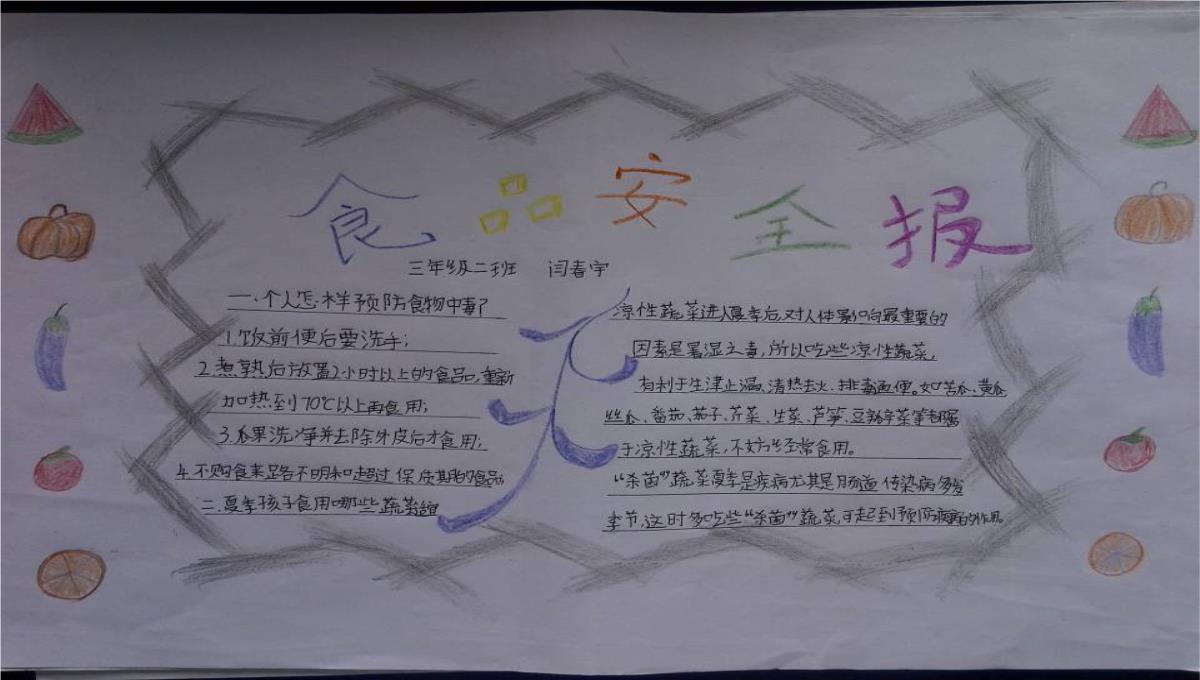 食品安全报
三年级二班 闫春宇
一、个人怎样预防食物中毒?
1.饭前便后要洗手;
2.煮熟后放置2小时以上的食品,重新
加热到70℃以上再食用;
3.瓜果洗净并去除外皮后才食用;
4.不购食来路不明和超过保质期的食品
二、夏季孩子食用哪些蔬菜
凉性蔬菜进入夏季后,对人体影响最重要的
因素是暑湿之毒,所以吃些凉性蔬菜,
有利于生津止渴、清热去火、排毒通便。如苦瓜、黄瓜
丝瓜、番茄、茄子、芹菜、生菜、芦笋、豆瓣菜等都属
于凉性蔬菜,不妨经常食用。
“杀菌”蔬菜夏季是疾病尤其是肠道传染病多发
季节,这时多吃些“杀菌”蔬菜,可起到预防疾病的作用。